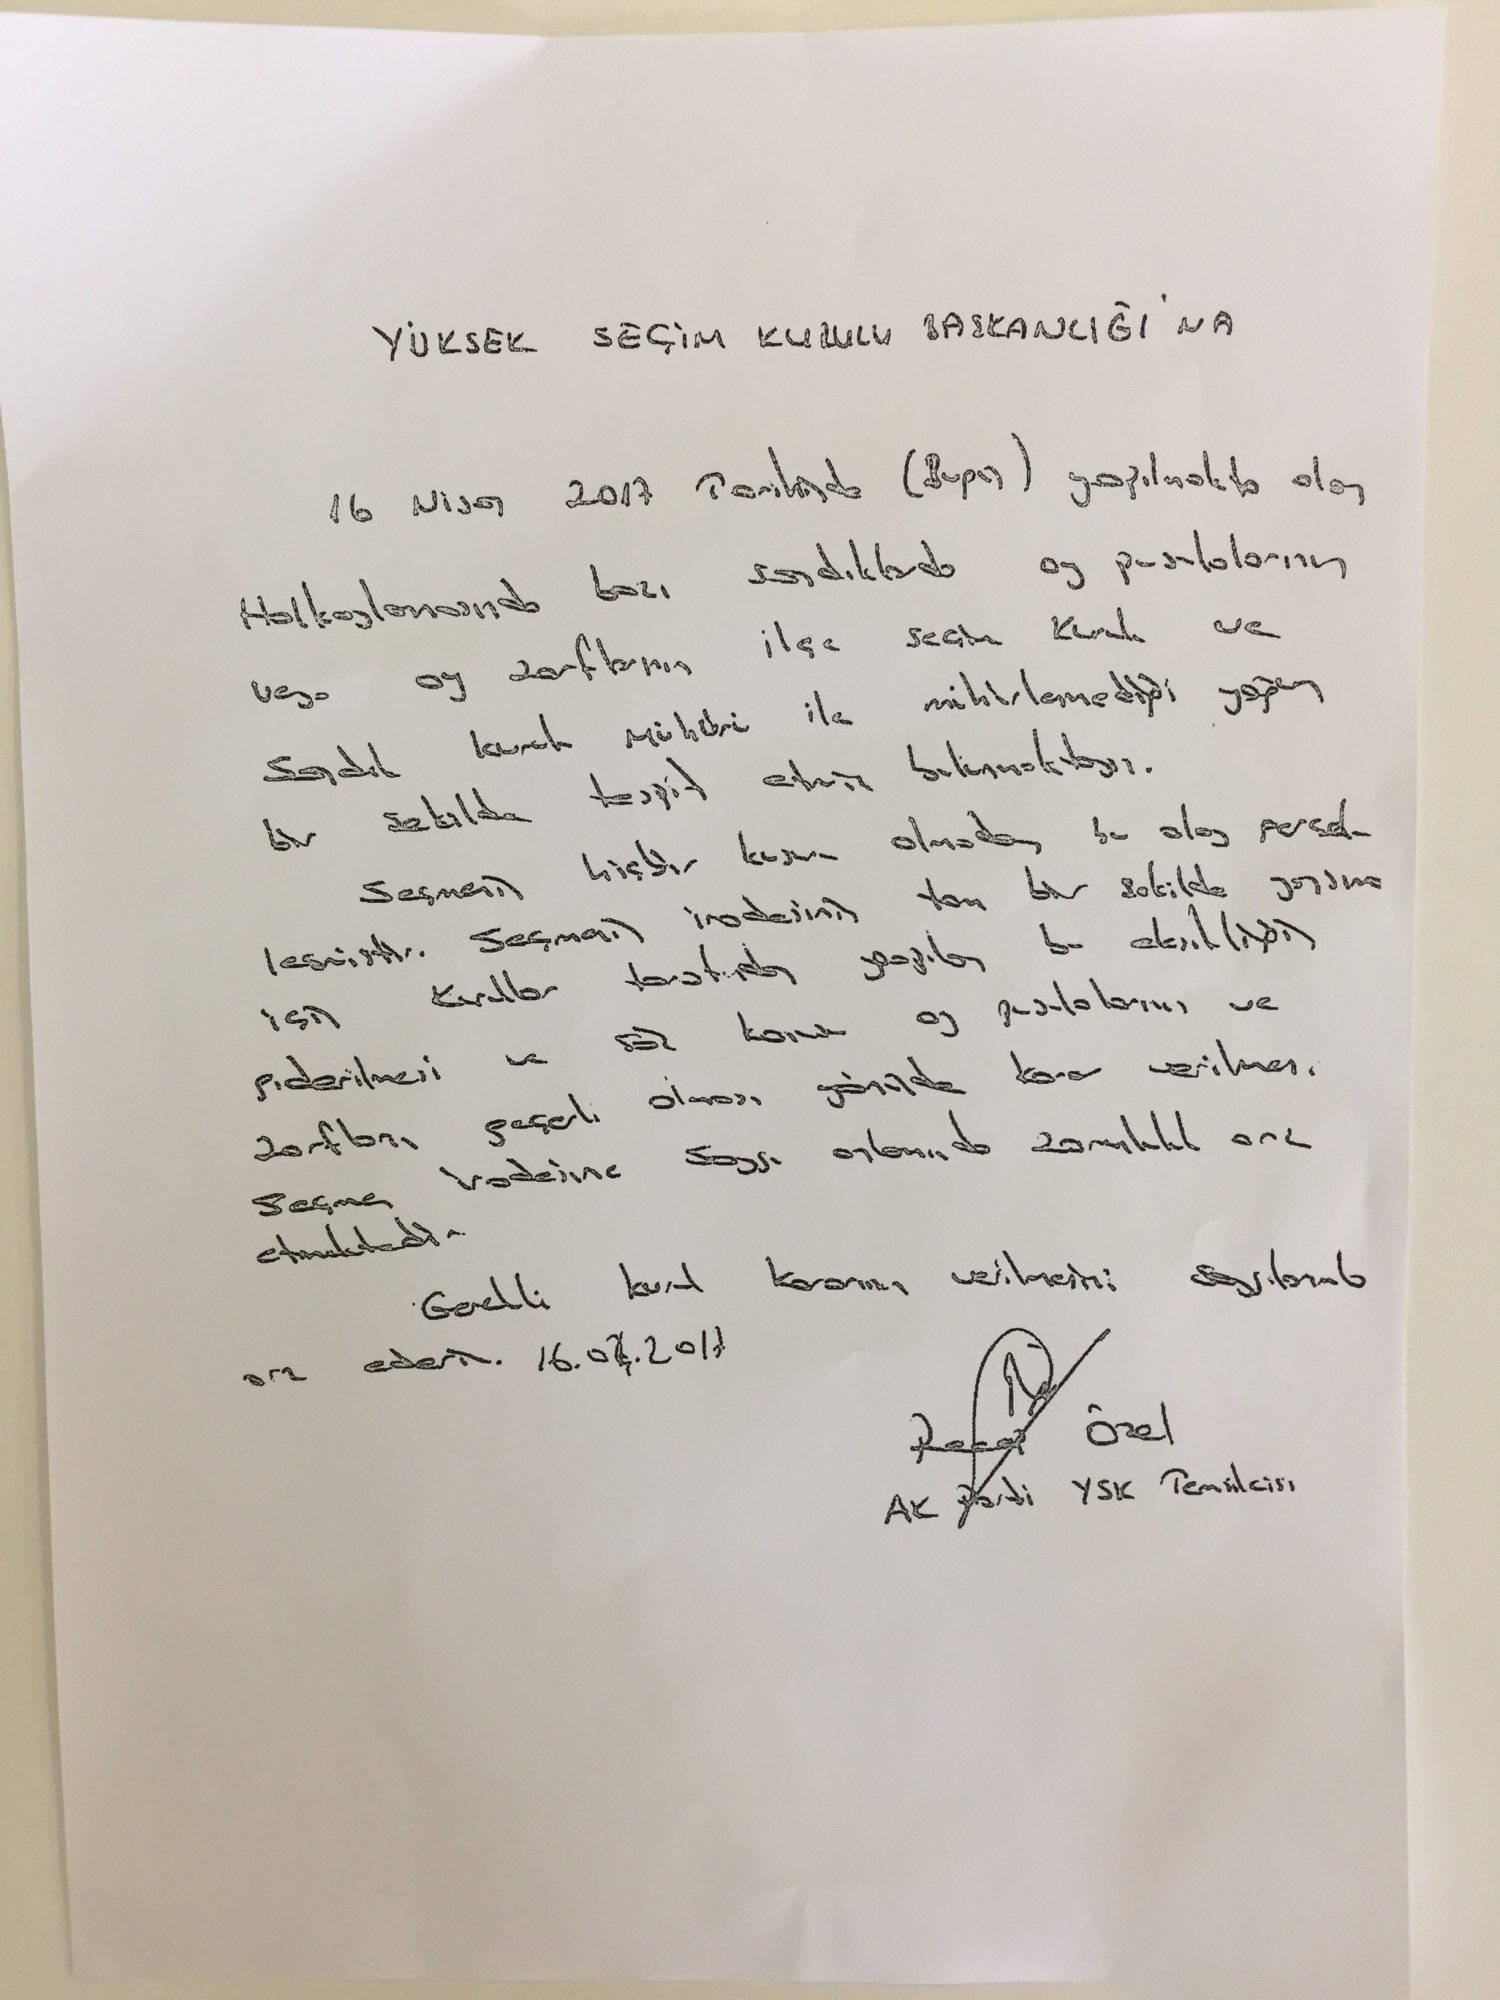 YÜKSEK SEÇİM KURULU BAŞKANLIĞI'NA
16 Nisan 2017 Tarihinde (Bugün) yapılmakta olan
Halkoylamasında bazı sandıklarda oy pusulalarının
veya oy zarflarının ilçe seçim kurulu ve
Sandık kurulu mühürü ile mühürlemediği yaygın
bir şekilde tespit etmiş bulunmaktayız.
Seçmenin hiçbir kusuru olmadan bu olay gerçek-
leşmiştir. Seçmenin iradesinin tam bir şekilde yansıma
için kurullar tarafından yapılan bu eksikliğin
giderilmesi ve söz konusu oy pusulalarının ve
zarfların geçerli olması yönünde karar verilmesi.
Seçmen iradesine saygı anlamında zorunluluk arz
etmektedir.
Gerekli kurul kararının verilmesini saygılarımla
arz ederim. 16.04.2017
Recep Özel
AK Parti YSK Temsilcisi